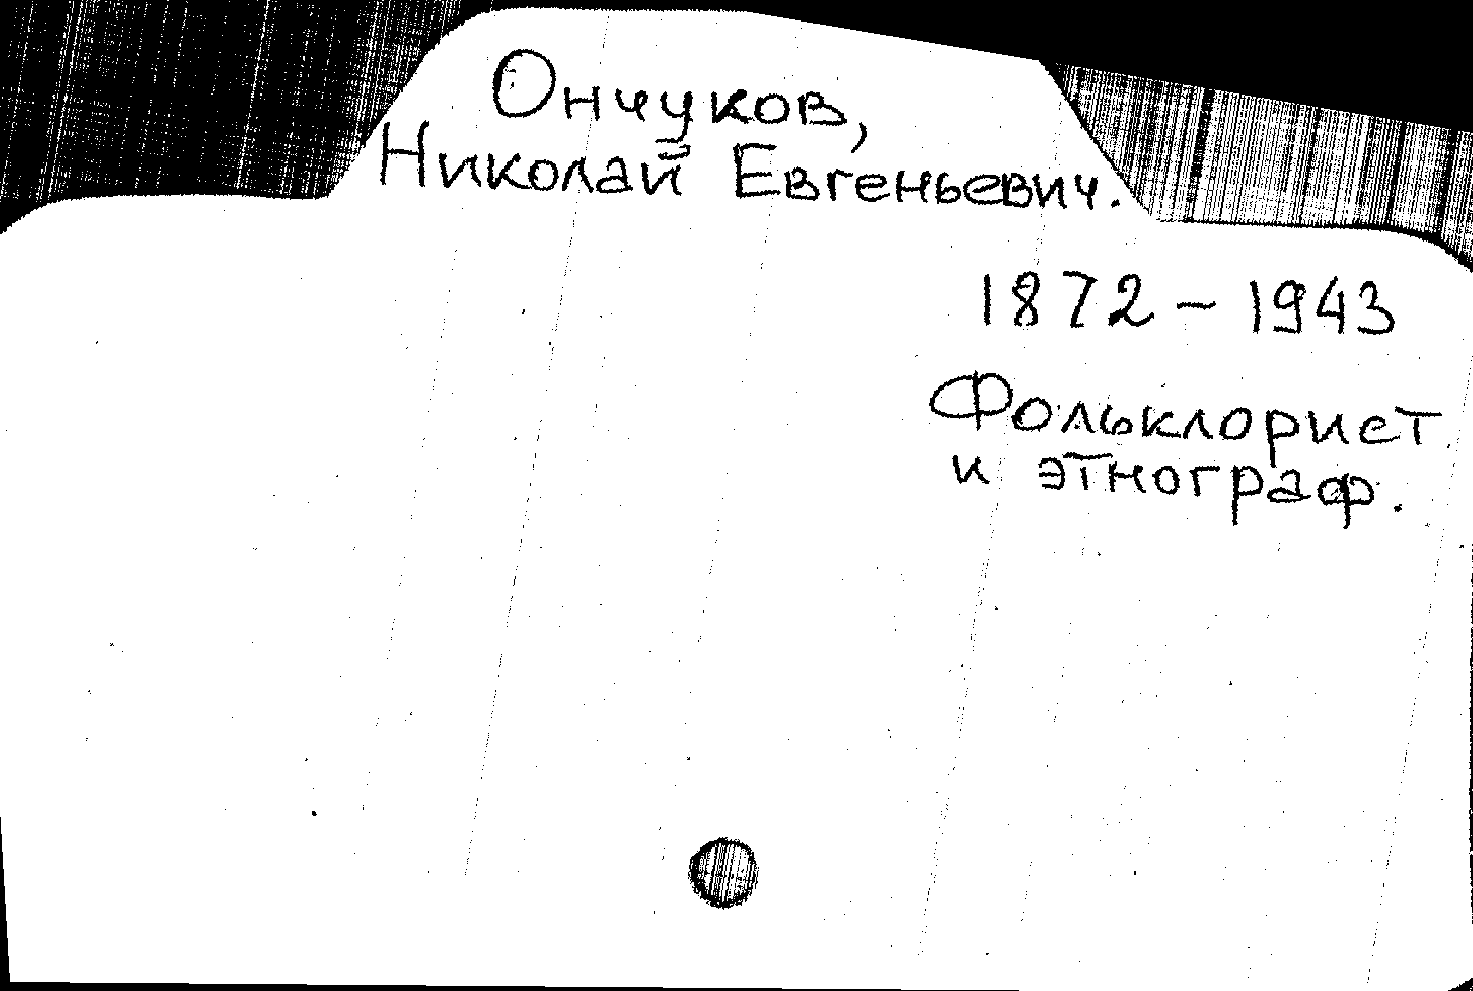 Ончуков,
Николай Евгеньевич.
1872 - 1943
Фольклорист
и этнограф.